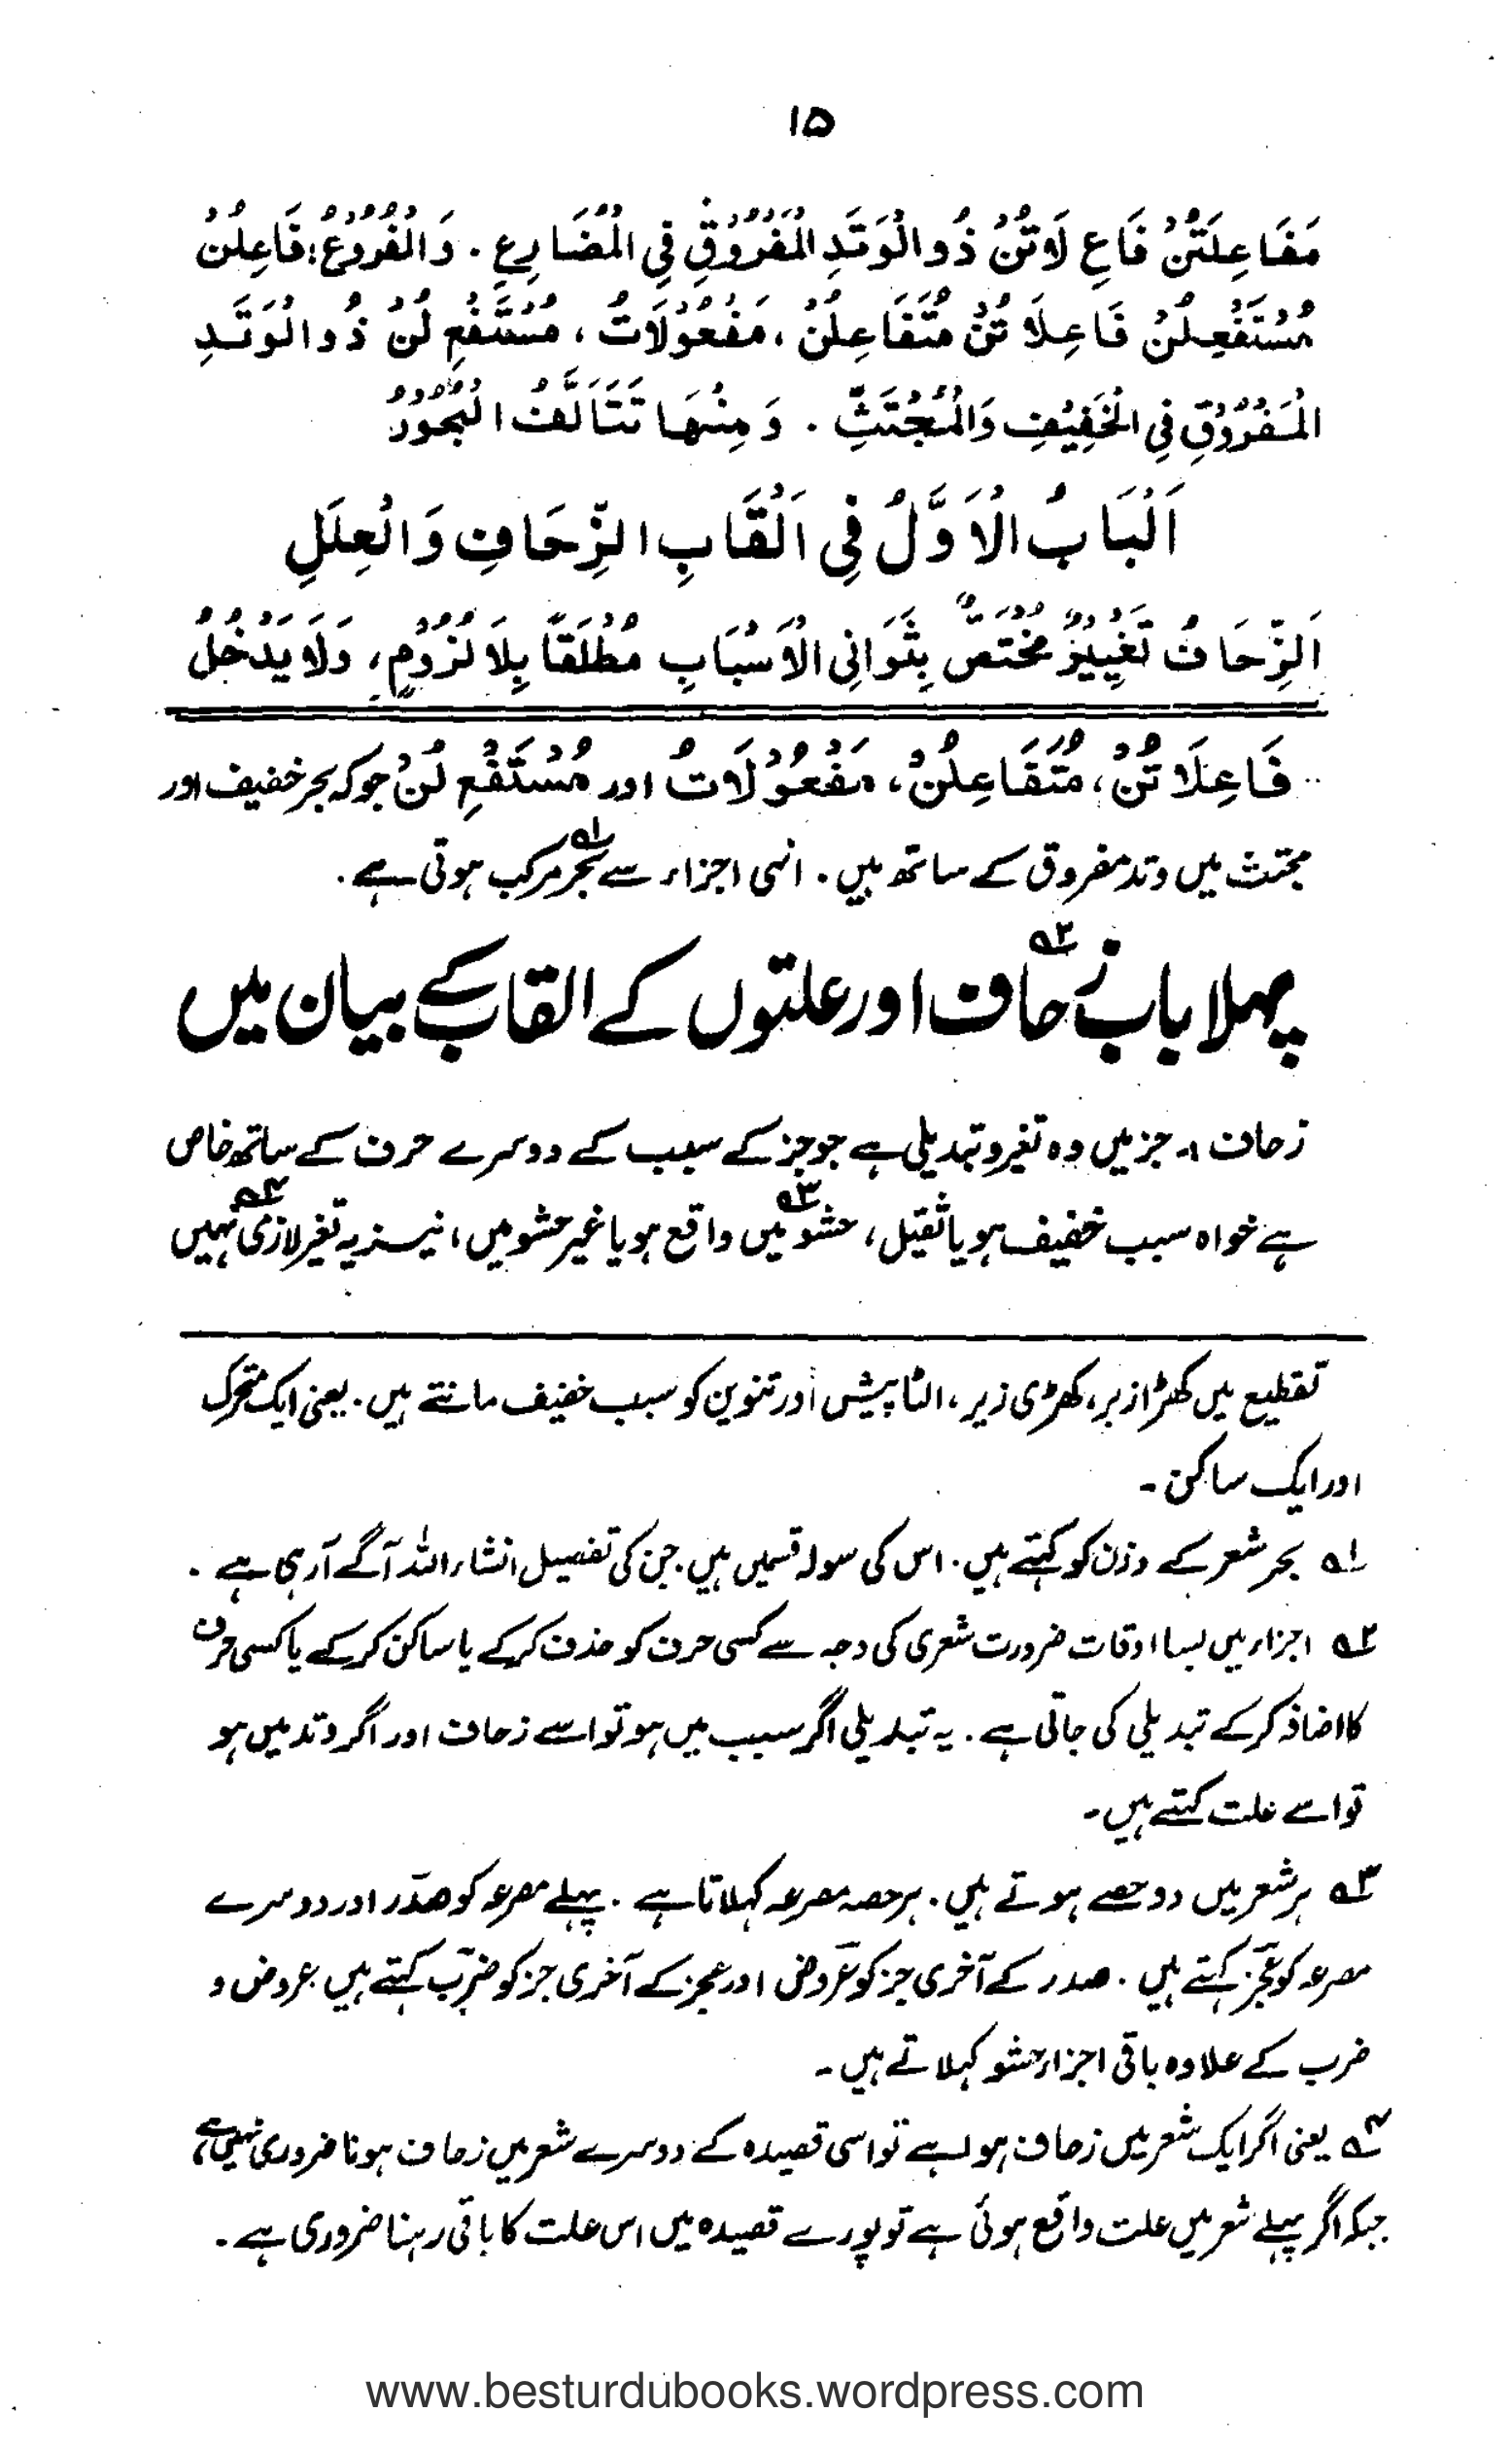 ۱۵
مَفَاعِلَتُنْ فَاعِ لَاتُنْ ذُو الْوَتَدِ الْمَفْرُوْقِ فِي الْمُضَارِعِ . وَالْفُرُوْعُ؛ فَاعِلُنْ
مُسْتَفْعِلُنْ فَاعِلَاتُنْ مُتَفَاعِلُنْ ، مَفْعُوْلَاتُ ، مُسْتَفْعِ لُنْ ذُو الْوَتَدِ
الْمَفْرُوْقِ فِي الْخَفِيْفِ وَالْمُجْتَثِّ . وَمِنْهَا تَتَأَلَّفُ الْبُحُوْرُ
اَلْبَابُ الْاَوَّلُ فِي اَلْقَابِ الزِّحَافِ وَالْعِلَلِ
اَلزِّحَافُ تَغْيِيْرٌ مُخْتَصٌّ بِثَوَانِي الْاَسْبَابِ مُطْلَقًا بِلَا لُزُوْمٍ، وَلَا يَدْخُلُ
فَاعِلَاتُنْ ، مُتَفَاعِلُنْ ، مَفْعُوْلَاتُ اور مُسْتَفْعِ لُنْ جو کہ بحر خفیف اور
مجتث میں وتد مفروق کے ساتھ ہیں . انہی اجزاء سے بحر۱ مرکب ہوتی ہے .
پہلا باب زحاف۲ اور علتوں کے القاب کے بیان میں
زحاف :۔ جز میں وہ تغیر و تبدیلی ہے جو جز کے سبب کے دوسرے حرف کے ساتھ خاص
ہے خواہ سبب خفیف ہو یا ثقیل ، حشو۳ میں واقع ہو یا غیر حشو میں ، نیز یہ تغیر لازمی۴ نہیں
تقطیع میں کھڑا زبر ، کھڑی زیر ، الٹا پیش اور تنوین کو سبب خفیف مانتے ہیں . یعنی ایک متحرک
اور ایک ساکن ۔
۱ بحر شعر کے وزن کو کہتے ہیں . اس کی سولہ قسمیں ہیں . جن کی تفصیل انشاء اللہ آگے آرہی ہے .
۲ اجزاء میں بسا اوقات ضرورت شعری کی وجہ سے کسی حرف کو حذف کرکے یا ساکن کرکے یا کسی حرف
کا اضافہ کرکے تبدیلی کی جاتی ہے . یہ تبدیلی اگر سبب میں ہو تو اسے زحاف اور اگر وتد میں ہو
تو اسے علت کہتے ہیں ۔
۳ ہر شعر میں دو حصے ہوتے ہیں . ہر حصہ مصرعہ کہلاتا ہے . پہلے مصرعہ کو صدر اور دوسرے
مصرعہ کو عجز کہتے ہیں . صدر کے آخری جز کو عروض اور عجز کے آخری جز کو ضرب کہتے ہیں . عروض و
ضرب کے علاوہ باقی اجزاء حشو کہلاتے ہیں ۔
۴ یعنی اگر ایک شعر میں زحاف ہوا ہے تو اسی قصیدہ کے دوسرے شعر میں زحاف ہونا ضروری نہیں ہے ،
جبکہ اگر پہلے شعر میں علت واقع ہوئی ہے تو پورے قصیدہ میں اس علت کا باقی رہنا ضروری ہے ۔
www.besturdubooks.wordpress.com